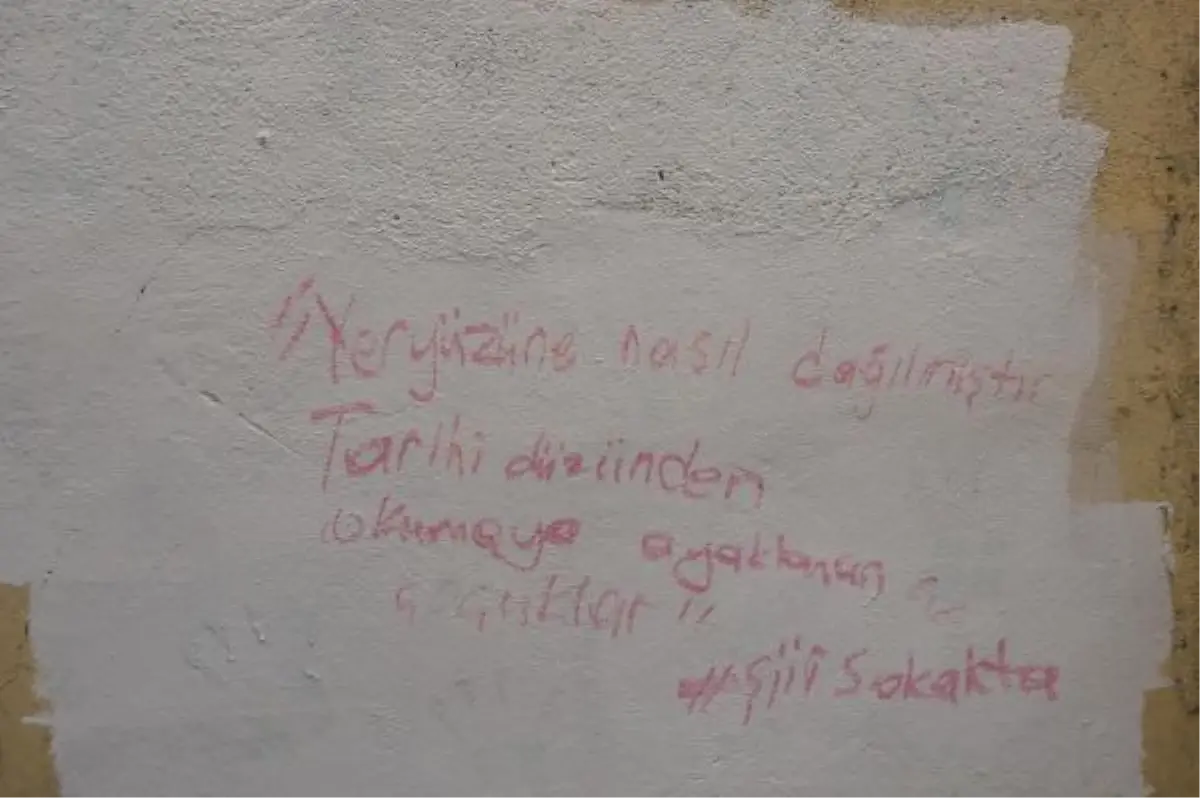 "Yeryüzüne nasıl dağılmıştır
Tarihi düzünden
okumaya ayaklanan
çocuklar"
#şiirsokakta